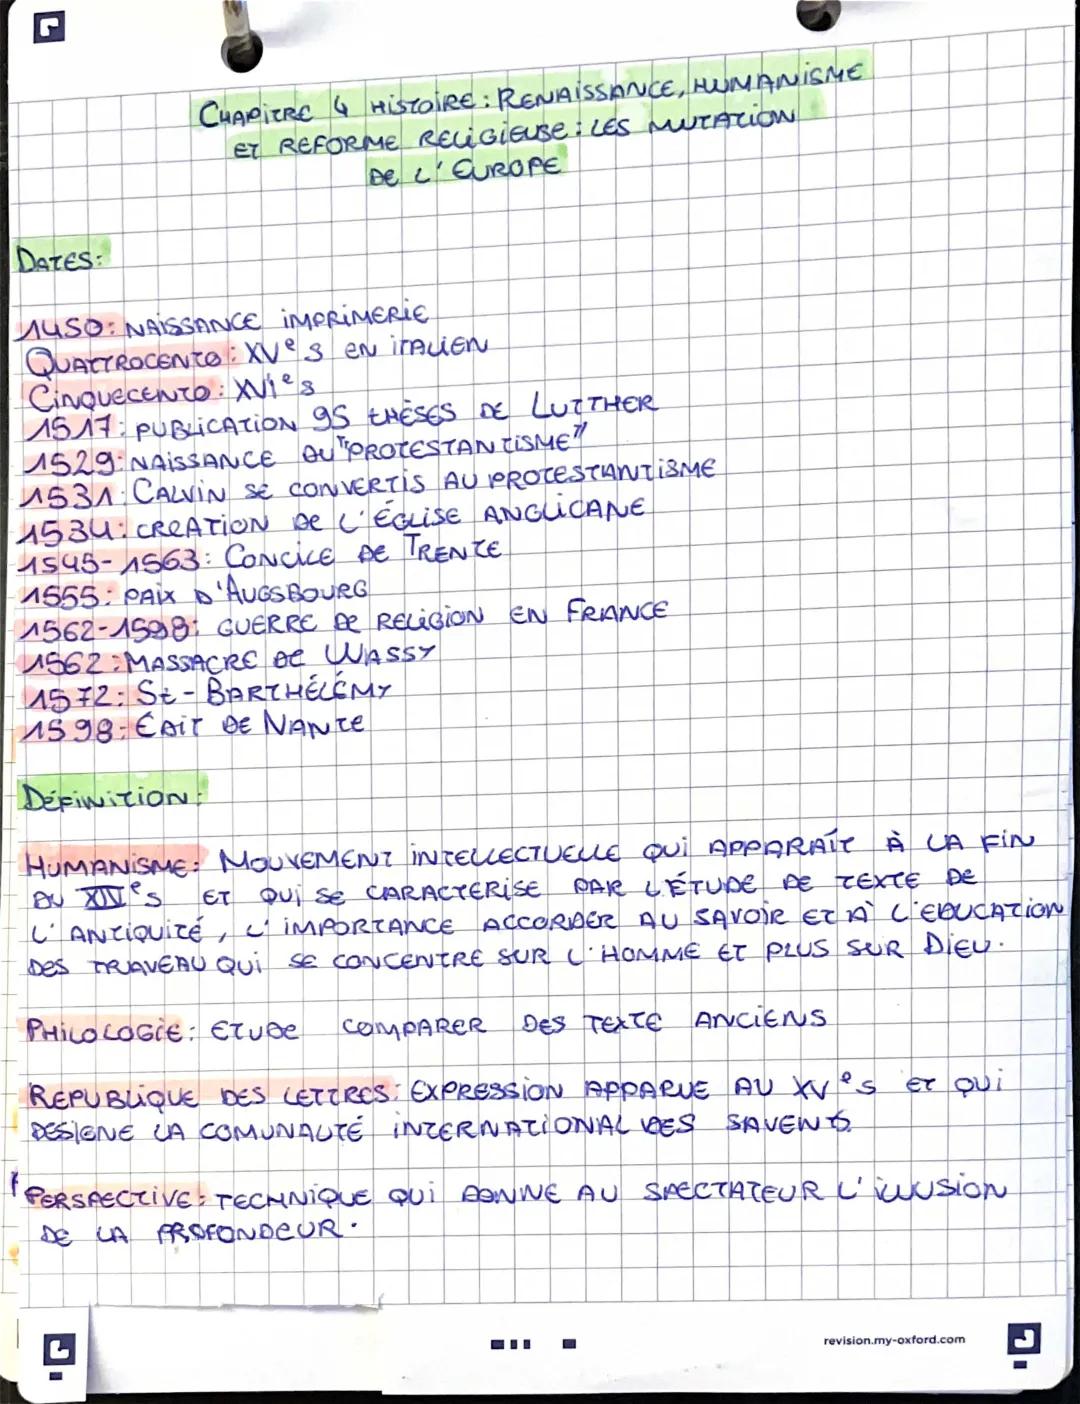 CHAPITRE 4 HISTOIRE : RENAISSANCE, HUMANISME
ET REFORME RELIGIEUSE : LES MUTATION
DE L'EUROPE
DATES :
1450 : NAISSANCE IMPRIMERIE
QUATTROCENTO : XVe s EN ITALIEN
CINQUECENTO : XVIe s
1517 : PUBLICATION 95 THÈSES DE LUTTHER
1529 : NAISSANCE DU "PROTESTANTISME"
1531 : CALVIN SE CONVERTIS AU PROTESTANTISME
1534 : CREATION DE L'ÉGLISE ANGLICANE
1545-1563 : CONCILE DE TRENTE
1555 : PAIX D'AUGSBOURG
1562-1598 : GUERRE DE RELIGION EN FRANCE
1562 : MASSACRE DE WASSY
1572 : St-BARTHÉLÉMY
1598 : ÉDIT DE NANTE
DÉFINITION :
HUMANISME : MOUVEMENT INTELLECTUELLE QUI APPARAÎT À LA FIN
DU XIVe s ET QUI SE CARACTERISE PAR L'ÉTUDE DE TEXTE DE
L'ANTIQUITÉ, L'IMPORTANCE ACCORDER AU SAVOIR ET À L'EDUCATION
DES TRAVEAU QUI SE CONCENTRE SUR L'HOMME ET PLUS SUR DIEU.
PHILOLOGIE : ETUDE COMPARER DES TEXTE ANCIENS
REPUBLIQUE DES LETTRES : EXPRESSION APPARUE AU XVe s ET QUI
DESIGNE LA COMUNAUTÉ INTERNATIONAL DES SAVENTS
PERSPECTIVE : TECHNIQUE QUI DONNE AU SPECTATEUR L'ILLUSION
DE LA PROFONDEUR.
revision.my-oxford.com